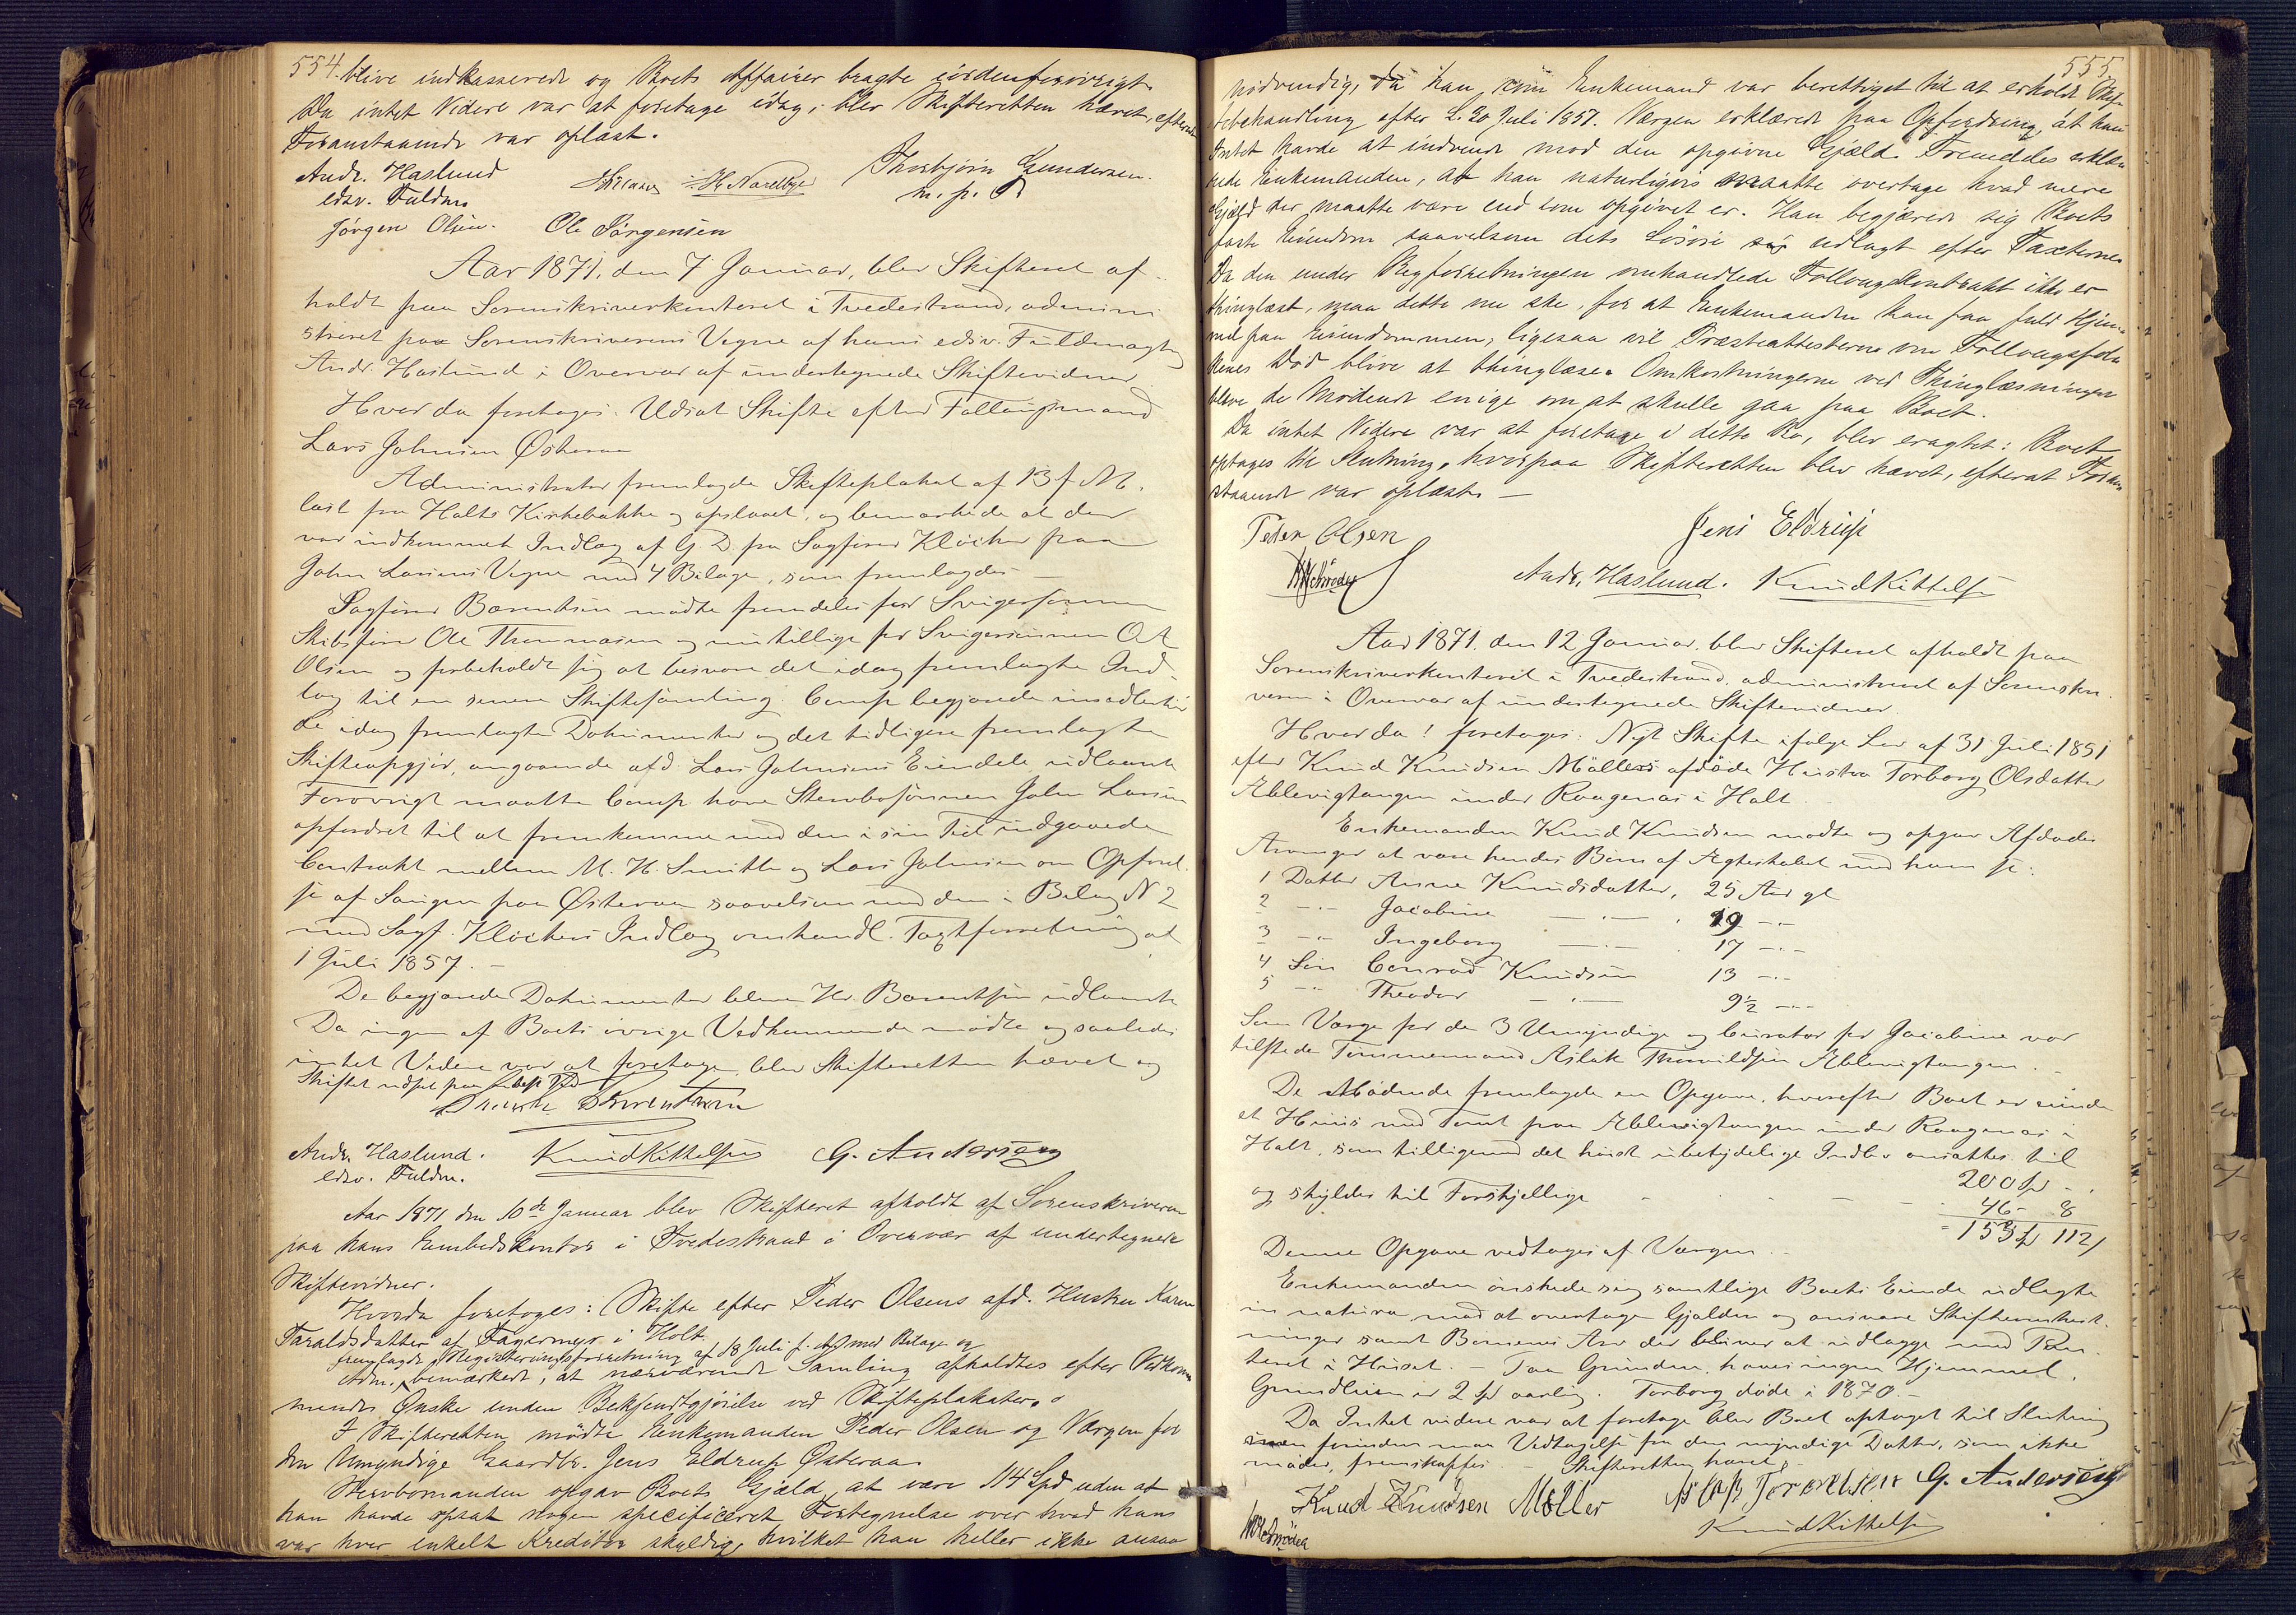 554. blive indkasserede og Boets Affairer bragte iorden forøvrigt
Da intet Videre var at foretage idag, blev Skifteretten hævet, efterat
Foranstaaende var oplæst.
Andr. Haslund
edsv. Fuldm.
H. Narelbye
Thorbjørn Gundersen
m. p. P
Jørgen Olsen. Ole Jørgensen
Aar 1871, den 7 Januar, blev Skifteret af-
holdt paa Sorenskriverkontoret i Tvedestrand, admini
streret paa Sorenskriverens Vegne af hans edsv. Fuldmægtig
Andr. Haslund i Overvær af undertegnede Skiftevidner
Hvorda foretoges: Udsat Skifte efter Follaugsmand
Lars Johnsen Østeraa
Administrator fremlagde Skifteplakat af 13 f. M.
læst fra Holts Kirkebakke og opslaaet, og bemærkede at der
var indkommet Indlæg af G. D. fra Sagfører Kløcker paa
John Larsens Vegne med 4 Bilage, som fremlagdes
Sagfører Barentsen mødte fremdeles for Svigersønnen
Skibsfører Ole Thommasen og nu tillige for Svigersønnen O A
Olsen og forbeholdt sig at besvare det idag fremlagte Ind-
læg til en senere Skiftesamling. Comp begjærede imidlertid
de idag fremlagte Dokumenter og det tidligere fremlagte
Skifteopgjør, angaaende afd. Lars Johnsens Eiendele udlaante
Forøvrigt maatte Comp have Stervbosønnen John Larsen
opfordret til at fremkomme med den i sin Tid indgaaede
Contrakt mellem M. H. Smith og Lars Johnsen om Opførel-
se af Saugen paa Østeraa saavelsom med den i Bilag N 2
med Sagf. Kløckers Indlæg omhandl. Taxtforretning af
1 Juli 1857. –
De begjærede Dokumenter bleve Hr. Barentsen udlaante
Da ingen af Boets øvrige Vedkommende mødte og saaledes
intet Videre var at foretage, blev Skifteretten hævet og
Skiftet udsat paa ubest Tid
Barentsen
Andr. Haslund. Knud Kittelsen G. Andersen
edsv. Fuldm.
Aar 1871 den 10de Januar blev Skifteret afholdt af Sorenskriveren
paa hans Embedskontor i Tvedestrand i Overvær af undertegnede
Skiftevidner.
Hvorda foretoges: Skifte efter Peder Olsens afd. Hustru Karen
Taraldsdatter af Fagermyr i Holt.
fremlagde Registreringsforretning af 18 Juli f. A. med Bilage og
Adm. bemærkede, at nærværende Samling afholdtes efter Vedkom
mendes Ønske uden Bekjendtgjørelse ved Skifteplakater.
I Skifteretten mødte Enkemanden Peder Olsen og Værgen for
den Umyndige Gaardbr. Jens Eldrup Østeraa
Stervbomanden opgav Boets Gjæld at være 114 Spd uden at
han havde opsat nogen specificeret Fortegnelse over hvad han
var hver enkelt Kreditor skyldig, hvilket han heller ikke ansaa
555
nødvendig, da han som Enkemand var berettiget til at erholde Skif-
tebehandling efter L. 20 Juli 1851. Værgen erklærede paa Opfordring, at han
Intet havde at indvende mod den opgivne Gjæld. Fremdeles erklæ
rede Enkemanden, at han naturligvis maatte overtage hvad mere
Gjæld der maatte være end som opgivet er. Han begjærede sig Boets
faste Eiendom saavelsom dets Løsøre udlagt efter Taxterne.
Da den under Regforretningen omhandlede Follougskontrakt ikke er
thinglæst, maa dette nu ske, for at Enkemanden kan faa fuld Hjem-
mel paa Eiendommen, ligesaa vil Præsteattesterne om Follougsfol-
kenes Død blive at thinglæse. Omkostningerne ved Thinglæsningen
bleve de Mødende enige om at skulle gaa fra Boet.
Da intet Videre var at foretage i dette Bo, blev eragtet: Boet
optages til Slutning, hvorpaa Skifteretten blev hævet, efterat Foran
staaende var oplæst –
Peder Olsen Jens Eldrup
Schrøder Andr. Haslund. Knud Kittelsen
Aar 1871. den 12 Januar. blev Skifteret afholdt paa
Sorenskriverkontoret i Tvedestrand, administreret af Sorenskri-
veren i Overvær af undertegnede Skiftevidner.
Hvorda! foretoges: Nyt Skifte ifølge Lov af 31 Juli 1851
efter Knud Knudsen Møllers afdøde Hustru Torborg Olsdatter
Ablevigtangen under Raagenæs i Holt.
Enkemanden Knud Knudsen mødte og opgav Afdødes
Arvinger at være hendes Børn af Ægteskabet med ham se:
1 Datter Anne Knudsdatter, 25 Aar gl
2 –"– Jacobine –"– 19 –"–
3 –"– Ingeborg –"– 17 –"–
4 Søn Conrad Knudsen 13 –"–
5 –"– Theodor –"– 9½ –"–
Som Værge for de 3 Umyndige og Curator for Jacobine var
tilstede Tømmermand Aslak Thorvildsen Ablevigtangen.
De Mødende fremlagde en Opgave, hvorefter Boet er eiende
et Huus med Tomt paa Ablevigtangen under Raagenæs i
Holt, som tilligemed det høist ubetydelige Indbo ansattes til
200 Spd – .
og skyldes til Forskjellige 46 – 8
153 Spd 112 ß
Denne Opgave vedtoges af Værgen.
Enkemanden ønskede sig samtlige Boets Eiende udlagte
in natura mod at overtage Gjælden og ansvare Skifteomkost-
ninger samt Børnenes Arv der bliver at udlægge med Pan-
teret i Huset. – Paa Grunden haves ingen Hjemmel.
Grundleien er 2 Spd aarlig. Torborg døde i 1870. –
Da Intet videre var at foretage blev Boet optaget til Slutning
forinden maa Vedtagelse fra den myndige Datter, som ikke
møder, fremskaffes. – Skifteretten hævet.
Knud Knudsen Møller Aslak Torvelsen G. Andersen
Schrøder Knud Kittelsen